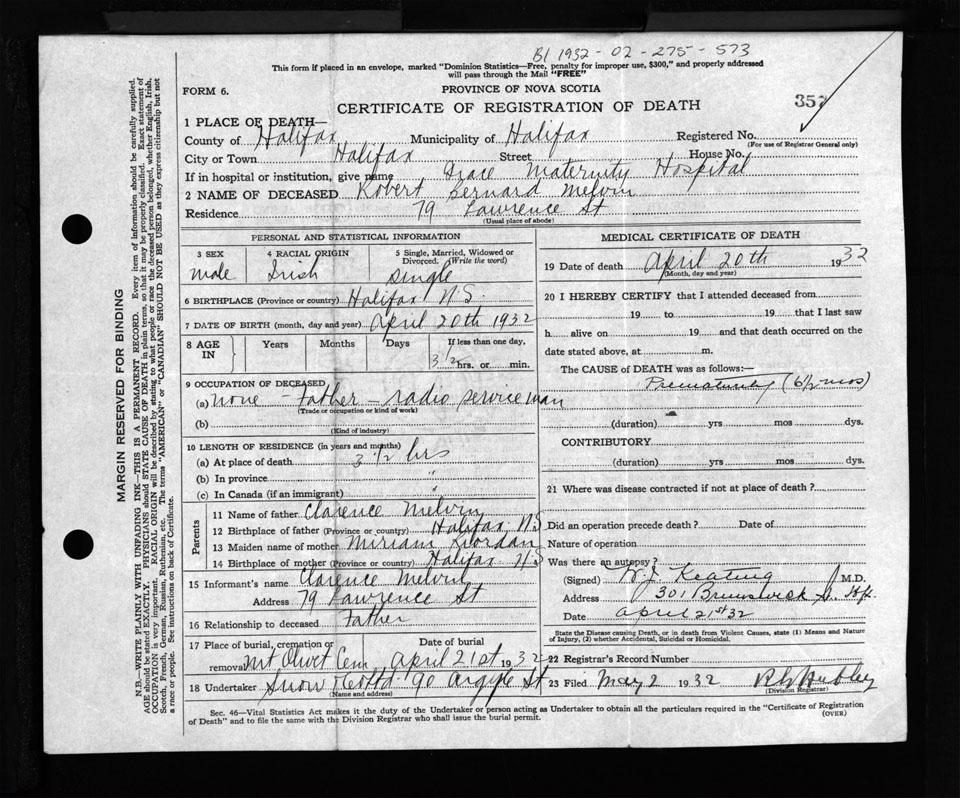 BI 1932 - 02 - 275 - 573
This form if placed in an envelope, marked "Dominion Statistics—Free, penalty for improper use, $300," and properly addressed
will pass through the Mail "FREE"
FORM 6.
PROVINCE OF NOVA SCOTIA
CERTIFICATE OF REGISTRATION OF DEATH
357
1 PLACE OF DEATH—
County of Halifax Municipality of Halifax Registered No.
(For use of Registrar General only)
City or Town Halifax Street House No.
If in hospital or institution, give name Grace Maternity Hospital
2 NAME OF DECEASED Robert Bernard Melvin
Residence 79 Lawrence St
(Usual place of abode)
PERSONAL AND STATISTICAL INFORMATION
3 SEX 4 RACIAL ORIGIN 5 Single, Married, Widowed or
Divorced. (Write the word)
male Irish single
6 BIRTHPLACE (Province or country) Halifax N.S.
7 DATE OF BIRTH (month, day and year) April 20th 1932
8 AGE IN Years Months Days If less than one day,
3 1/2 hrs. or min.
9 OCCUPATION OF DECEASED
(a) none - Father - radio service man
(Trade or occupation or kind of work)
(b)
(Kind of industry)
10 LENGTH OF RESIDENCE (in years and months)
(a) At place of death 3 1/2 hrs
(b) In province "
(c) In Canada (if an immigrant) "
Parents
11 Name of father Clarence Melvin
12 Birthplace of father (Province or country) Halifax N.S
13 Maiden name of mother Miriam Riordan
14 Birthplace of mother (Province or country) Halifax N.S
15 Informant's name Clarence Melvin
Address 79 Lawrence St
16 Relationship to deceased Father
17 Place of burial, cremation or removal Mt Olivet Cem Date of burial April 21st 1932
18 Undertaker Snow & Co Ltd 90 Argyle St
(Name and address)
MEDICAL CERTIFICATE OF DEATH
19 Date of death April 20th 1932
(Month, day and year)
20 I HEREBY CERTIFY that I attended deceased from
19 to 19 that I last saw
h alive on 19 and that death occurred on the
date stated above, at m.
The CAUSE of DEATH was as follows:—
Prematurity (6 1/2 mos)
(duration) yrs mos dys.
CONTRIBUTORY
(duration) yrs mos dys.
21 Where was disease contracted if not at place of death?
Did an operation precede death? Date of
Nature of operation
Was there an autopsy?
(Signed) Keating M.D.
Address 301 Brunswick St. Hfx.
Date April 21st 32
State the Disease causing Death, or in death from Violent Causes, state (1) Means and Nature
of Injury, (2) whether Accidental, Suicidal or Homicidal.
22 Registrar's Record Number
23 Filed May 2 1932
(Division Registrar)
Sec. 46—Vital Statistics Act makes it the duty of the Undertaker or person acting as Undertaker to obtain all the particulars required in the "Certificate of Registration
of Death" and to file the same with the Division Registrar who shall issue the burial permit.
(OVER)
MARGIN RESERVED FOR BINDING
N.B.—WRITE PLAINLY WITH UNFADING INK—THIS IS A PERMANENT RECORD. Every item of information should be carefully supplied.
AGE should be stated EXACTLY. PHYSICIANS should STATE CAUSE OF DEATH in plain terms, so that it may be properly classified. Exact statement of
OCCUPATION is very important. RACIAL ORIGIN will be described by stating to what people or race the deceased person belonged, whether English, Irish,
Scotch, French, German, Russian, Ruthenian, etc. The terms "AMERICAN" or "CANADIAN" SHOULD NOT BE USED as they express citizenship but not
a race or people. See instructions on back of Certificate.